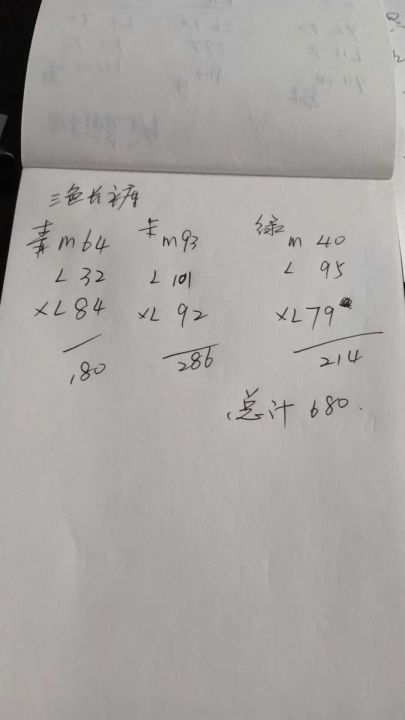 三色长衣库
青 M 64 卡 M 93 绿 M 40
L 32 L 101 L 95
XL 84 XL 92 XL 79
180 286 214
总计 680.